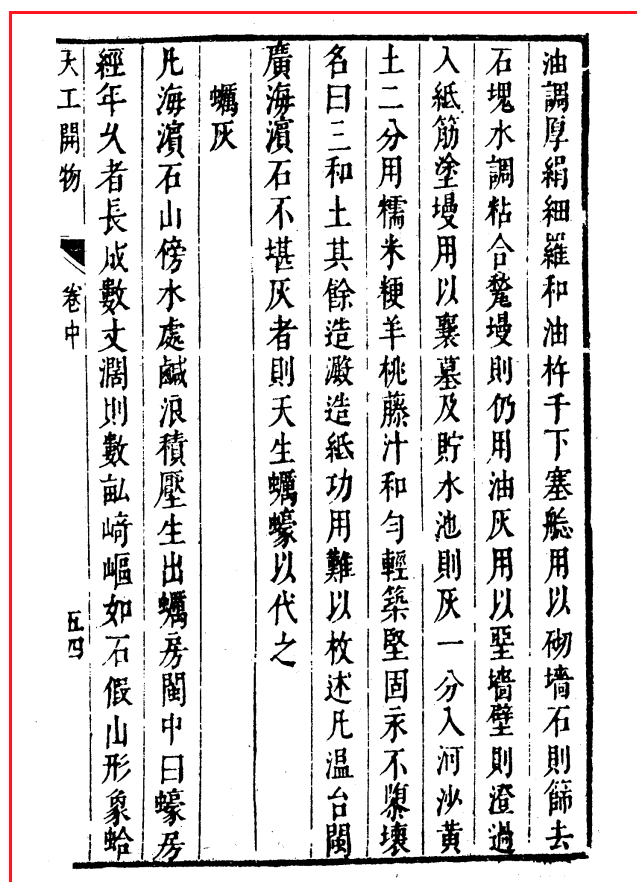 油調厚絹細羅和油杵千下塞艌用以砌墻石則篩去
石塊水調粘合甃墁則仍用油灰用以堊墻壁則澄過
入紙筋塗墁用以襄墓及貯水池則灰一分入河沙黃
土二分用糯米粳羊桃藤汁和勻輕築堅固永不隳壞
名曰三和土其餘造澱造紙功用難以枚述凡溫台閩
廣海濱石不堪灰者則天生蠣蠔以代之
蠣灰
凡海濱石山傍水處鹹浪積壓生出蠣房閩中曰蠔房
經年久者長成數丈濶則數畝崎嶇如石假山形象蛤
天工開物
卷中
五四